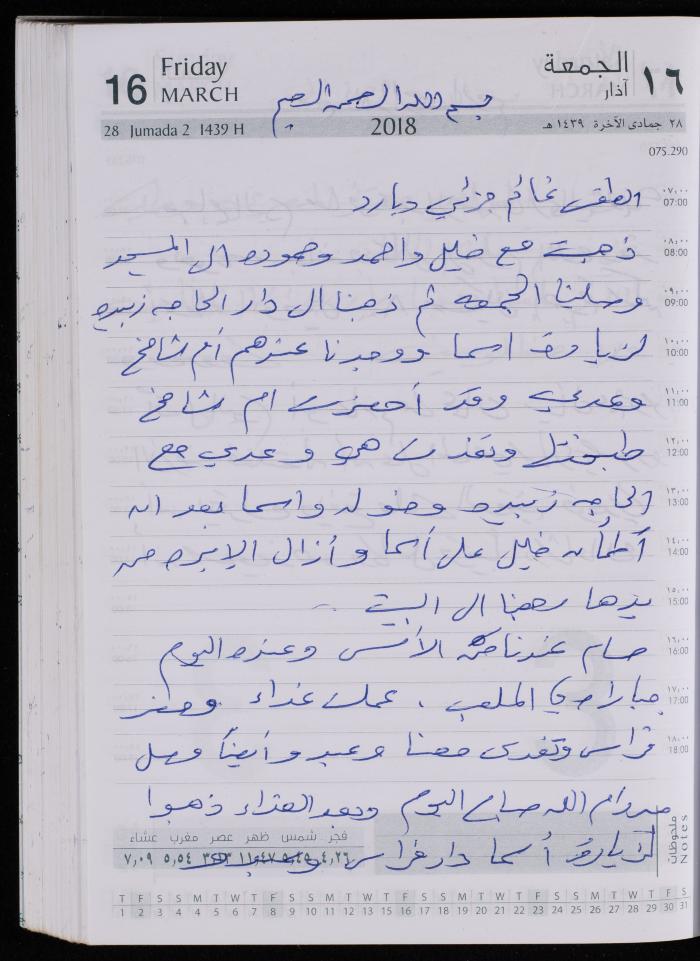 16 Friday MARCH
الجمعة ١٦ آذار
بسم الله الرحمن الرحيم
28 Jumada 2 1439 H 2018 ٢٨ جمادى الآخرة ١٤٣٩ هـ
075.290
٠٧,٠٠ 07:00 الطقس غائم جزئي وبارد
٠٨,٠٠ 08:00 ذهبت مع خليل واحمد وحموده الى المسجد
٠٩,٠٠ 09:00 وصلينا الجمعه ثم ذهبنا الى دار الحاجه زبيده
١٠,٠٠ 10:00 لزيارة اسما ووجدنا عندهم أم شامخ
١١,٠٠ 11:00 وعدي وقد أحضرت ام شامخ
١٢,٠٠ 12:00 طبختها وتغدت هي وعدي مع
١٣,٠٠ 13:00 الحاجه زبيده وخوله واسما بعد ان
١٤,٠٠ 14:00 أطمأن خليل على أسما وأزال الإبره من
١٥,٠٠ 15:00 يدها رجعنا الى البيت
١٦,٠٠ 16:00 صام عندنا الأمس وعنده اليوم
١٧,٠٠ 17:00 مباراه في الملعب . عملت غداء وحضر
١٨,٠٠ 18:00 فراس وتغدى معنا وعبد وأيضاً
الله صباح اليوم وبعد الغداء ذهبوا
لزيارة أسما دار فراس
ملاحظات Notes
فجر شمس ظهر عصر مغرب عشاء
٤,٢٦ ٥,٤٥ ١١,٤٧ ٣,١٣ ٥,٥٤ ٧,٠٩
T F S S M T W T F S S M T W T F S S M T W T F S S M T W T F S
1 2 3 4 5 6 7 8 9 10 11 12 13 14 15 16 17 18 19 20 21 22 23 24 25 26 27 28 29 30 31